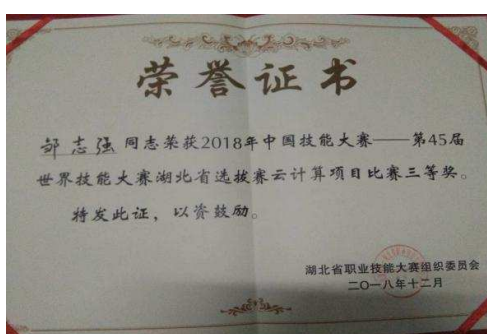 荣誉证书
邹志强 同志荣获2018年中国技能大赛——第45届
世界技能大赛湖北省选拔赛云计算项目比赛三等奖。
特发此证，以资鼓励。
湖北省职业技能大赛组织委员会
二〇一八年十二月